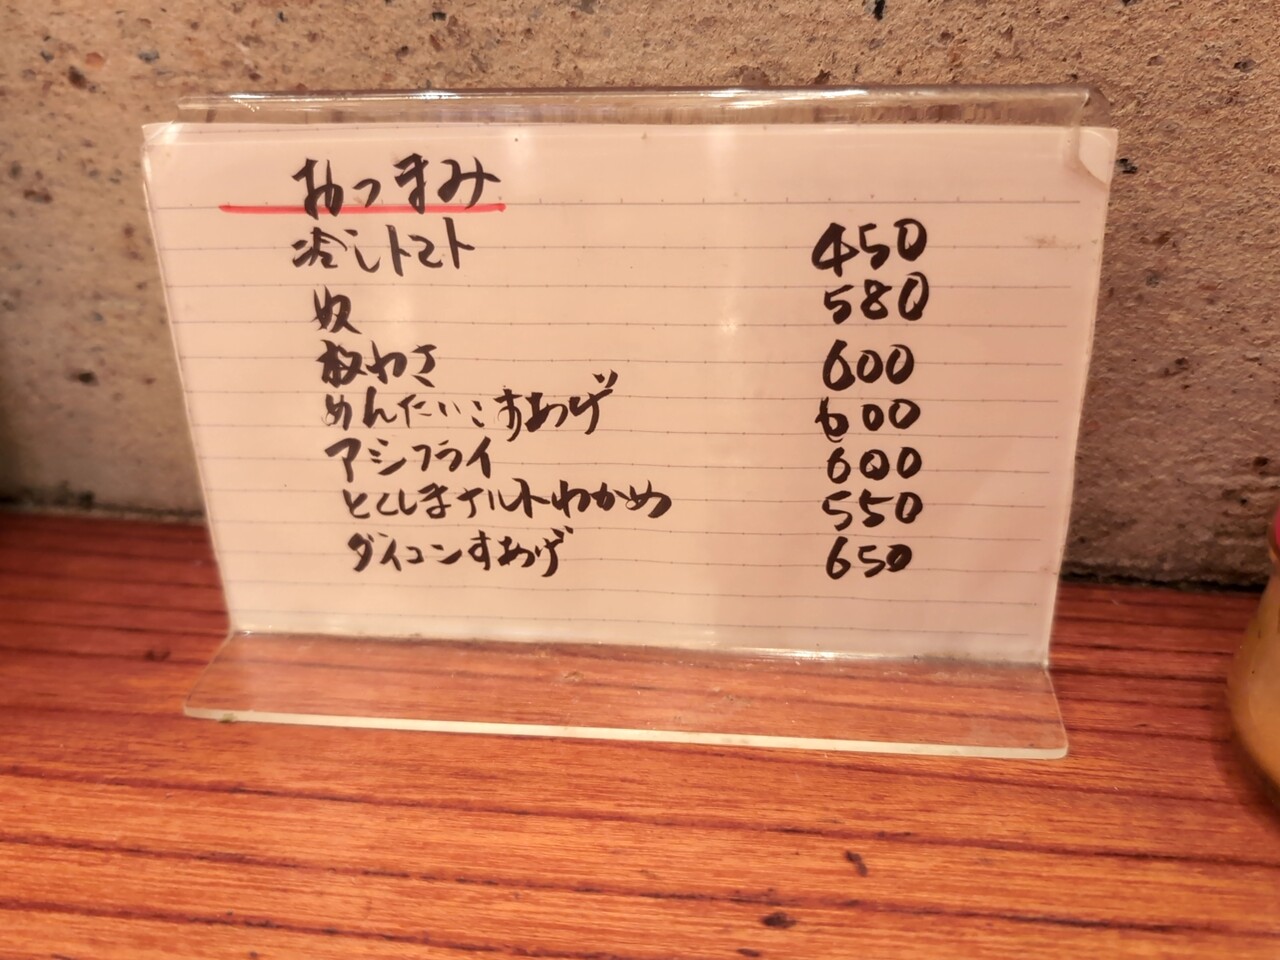 おつまみ
冷しトマト 450
奴 580
板わさ 600
めんたいこすあげ 600
アジフライ 600
とくしまナルトわかめ 550
ダイコンすあげ 650